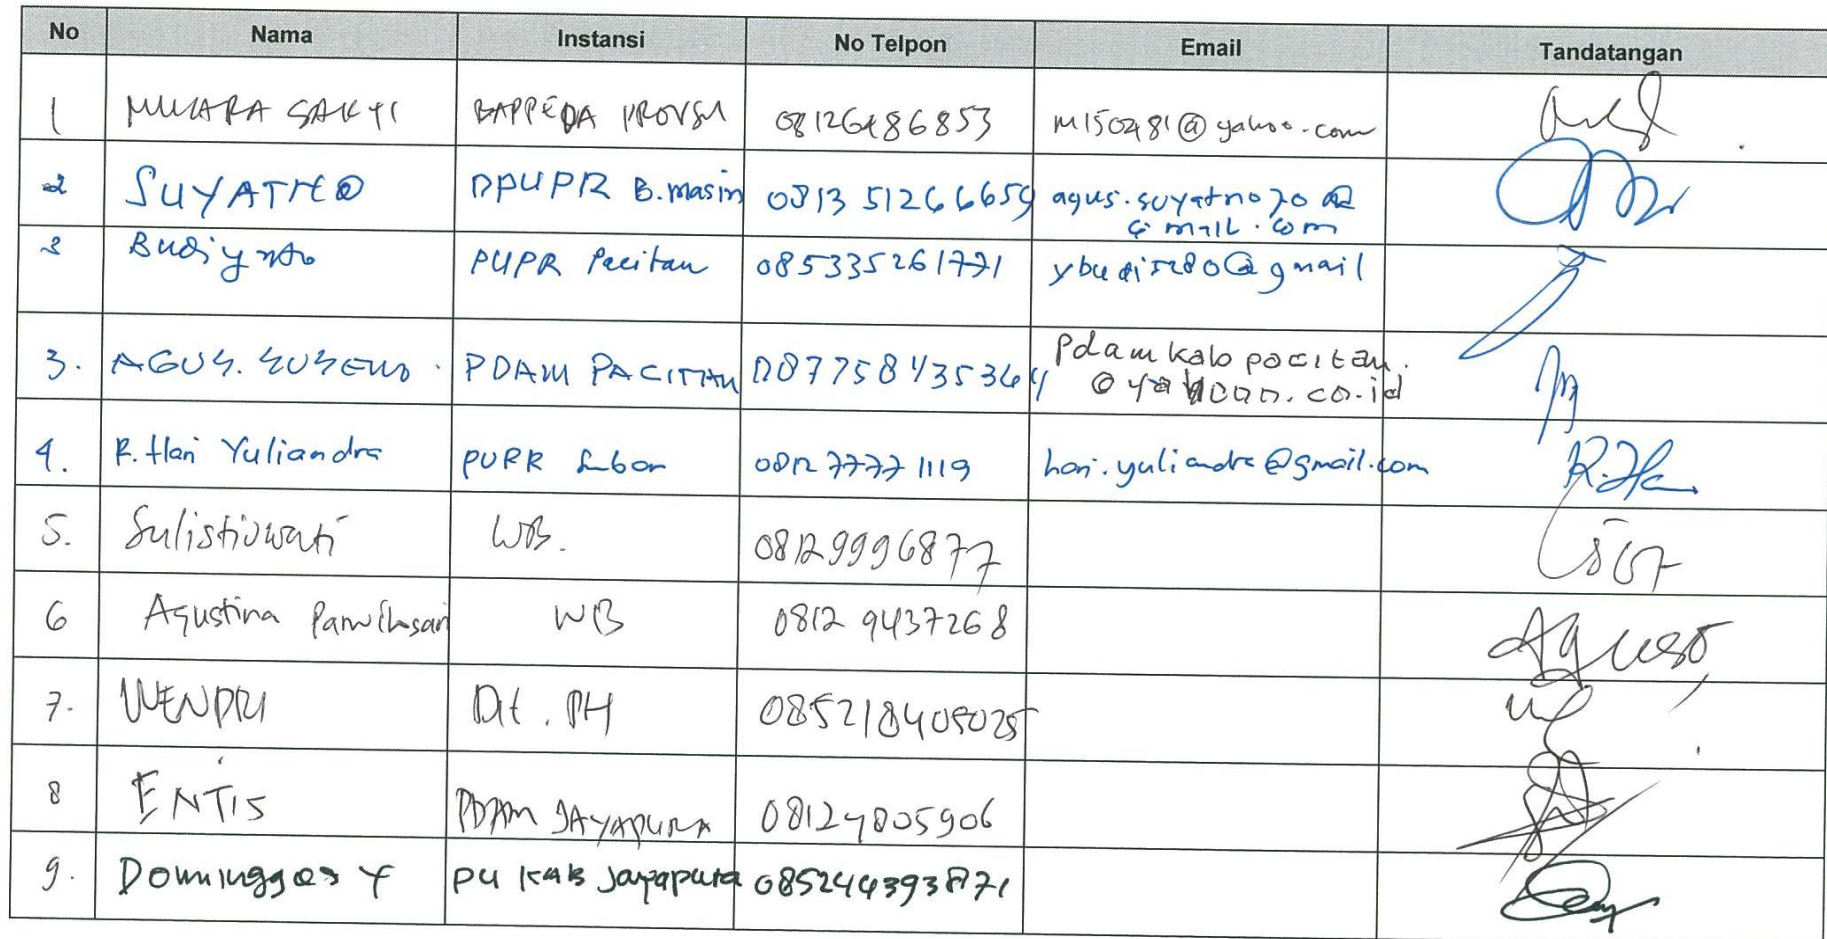 No Nama Instansi No Telpon Email Tandatangan
1 MUKARA SAKTI BAPPEDA PROVSU 08126486853 m150481@yahoo.com
2 SUYATNO DPUPR B.masin 0813 51266659 agus.suyatno70@
gmail.com
3 Budiyanto PUPR Pacitan 085335261771 ybudi5280@gmail
3. AGUS. SUSENO. PDAM PACITAN 087758435364 pdamkabpacitan.
@yahoo.co.id
4. R. Hari Yuliandra PUPR 0812 7777 1119 hari.yuliandra@gmail.com R.Ha
5. Sulistiowati WB. 08129996877
6 Agustina WB 0812 9437268 Agust
7. WENDRI Dit. PH 085218405025
8 ENTIS PDAM JAYAPURA 08124805906
9. Dominggos Y PU KAB Jayapura 085244393871